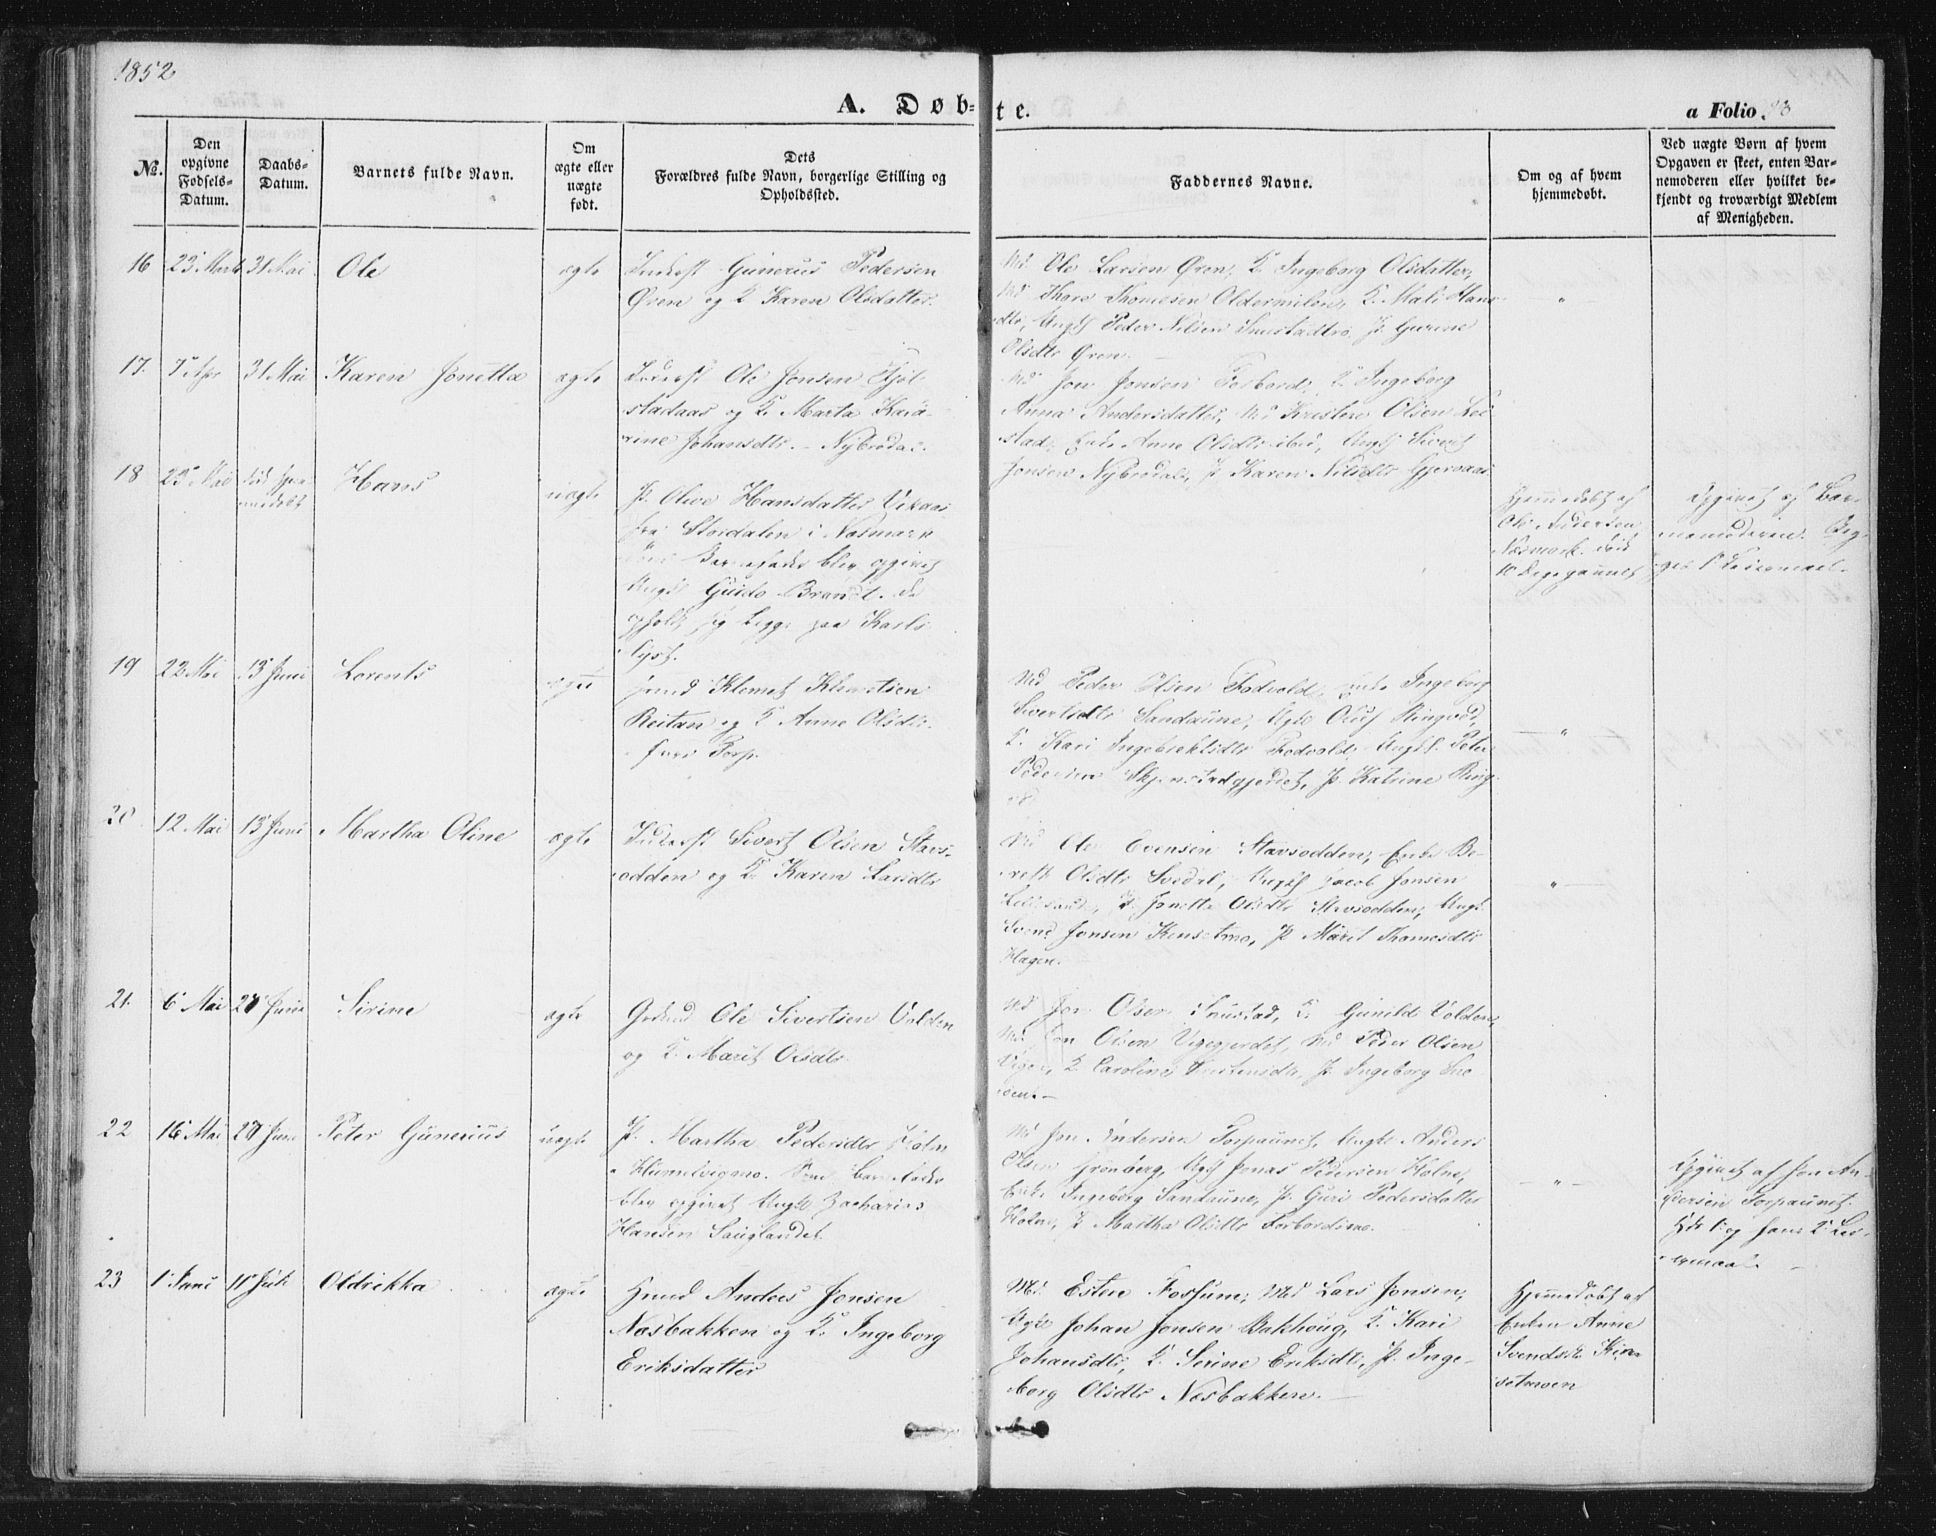 1852
A. Døb-
te.
a Folio
№.
Den
opgivne
Fødsels-
Datum.
Daabs-
Datum.
Barnets fulde Navn.
Om
ægte eller
uægte
født.
Dets
Forældres fulde Navn, borgerlige Stilling og
Opholdssted.
Faddernes Navne.
Om og af hvem
hjemmedøbt.
Ved uægte Børn af hvem
Opgaven er skeet, enten Bar-
nemoderen eller hvilket be-
kjendt og troværdigt Medlem
af Menigheden.
16 23 Marts 31 Mai Ole ægte Inderst Gunerus Pedersen
Øren og K. Karen Olsdatter.
Md Ole Larsen Øren, K. Ingeborg Olsdatter,
Md Thore Thomesen Oldermelen, K. Mali Hans-
dtr, Ungk Peder Nilsen Snustadtrø, P. Gurine
Olsdtr Øren. "
17. 7 Apr 31 Mai Karen Jonetta ægte Inderst Ole Jonsen
stadaas og K. Marta Kara-
rine Johansdtr. - Nybrodal.
Md Jon Jonsen Forbord, K. Ingeborg
Anna Andersdatter, Md Kristen Olsen
stad, Anne Olsdtr ibid, Ungk Sivert
Jonsen Nybrodal, P. Karen Nilsdtr Gjeraas
18 23 Mai Hans uægte P. Olive Hansdatter
fra Stordalen i Næsmark
Barnefader blev opgivet
Ungk Guido Brandt. De
opholdt sig begge paa Karls
lyst.
Hjemmedøbt af
Ole Andersen
Næsmark. død
10 Dage gammel
Opgivet af Bar-
nemoderen. Beg-
ges 1 Leiermaal.
19 22 Mai 13 Juni Lorents ægte Klemet Klemetsen
Reitan og K. Anne Olsdtr
Torp.
Md Peder Olsen Fodvold, Enke Ingeborg
Sivertsdtr Sandaune, Ungk Oluf Ringvod,
K. Kari Ingebrektsdtr Fodvold, Ungk. Peter
Pedersen Skjenstadgjerdet, P. Katrine Ring-
"
20 12 Mai 13 Juni Martha Oline ægte Inderst Sivert Olsen Stavs-
odden og K. Karen Larsdtr
Md Ole Evensen Stavsodden, Enke Be-
reth Olsdtr Svedal, Ungk Jacob Jonsen
P. Jonetta Olsdtr Stavsodden, Ungk
Svend Jonsen Kensetmo, P. Marit Thomesdtr
Hagen. "
21. 6 Mai 28 Juni Sirine ægte Grbrd Ole Sivertsen Volden
og K. Marit Olsdtr.
Md Jon Olsen Snustad, K. Gunild Volden,
Md Jon Olsen Vigegjerdet, Md Peder Olsen
Vigen, K. Caroline Kristensdtr, P. Ingeborg
22 16 Mai 28 Juni Peter Gunerius uægte P. Martha Pedersdtr Holm
Hummelvigmo. Som barnefader
blev opgivet Ungk Zacharias
Hansen Sauglandet.
Md Jon Andersen Torpaunet, Ungk Anders
Olsen Grønberg, Ungk Jonas Pedersen Holm,
Enke Ingeborg Sandaune, P. Guri Pedersdatter
Holm, P. Martha Olsdtr Forbordsmo.
"
Opgivet af Jon An-
dersen Torpaunet.
Hds 1 og hans 2 Lei-
ermaal.
23 1 Juni 11 Juli Oldrikka ægte Hmd Anders Jonsen
Næsbakken og K. Ingeborg
Eriksdatter
Md. Esten Fossum, Md Lars Jonsen,
Ungk Johan Jonsen Bakhaug, K. Kari
Johansdtr, K. Serine Eriksdtr, P. Inge-
borg Olsdtr Næsbakken.
Hjemmedøbt af
Enken Anne
Svendsdtr Kin-
setmoen